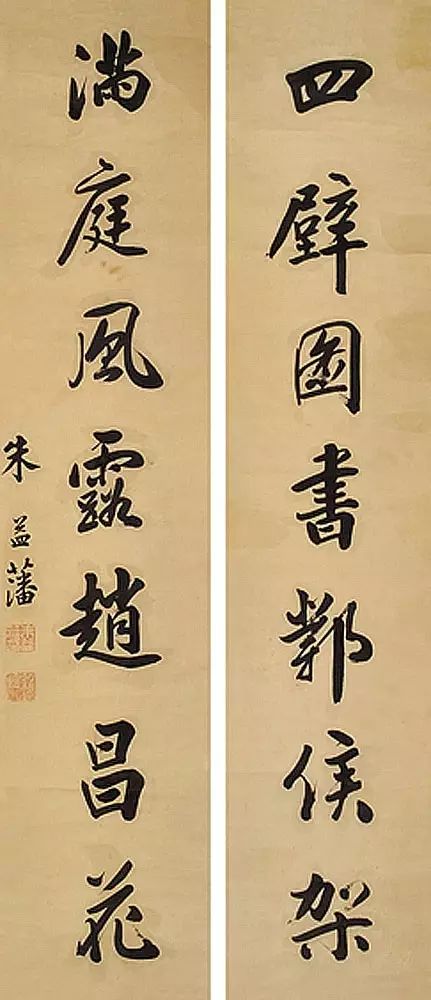 四壁圖書鄴侯架
滿庭風露趙昌花
朱益藩